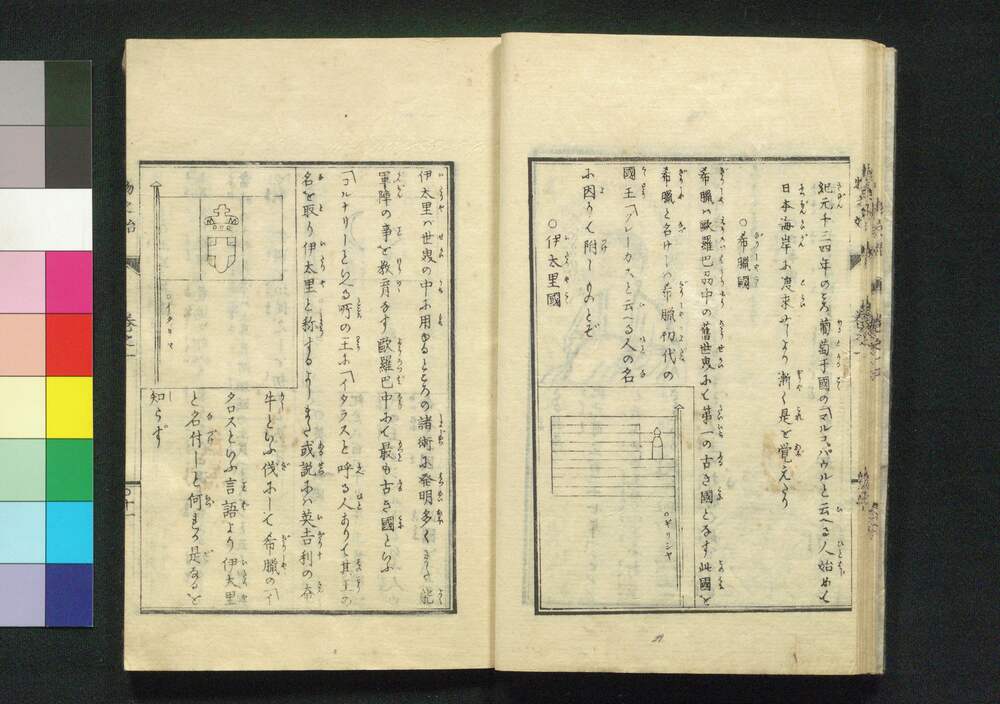 紀元千三四年のころ葡萄牙國の「マルコ、パウル」と云へる人始めて
日本海岸に渡来せしより漸く是を覚えたり
○希臘國
希臘ハ歐羅巴品中の舊世界にて第一の古き國となす此國を
希臘と名けしハ希臘初代の
國王「グレーカス」と云へる人の名
に因りて附しものとぞ
○伊太里國
○ギリシヤ
伊太里ハ世界の中に用ゆるところの諸術に発明多くまた能
軍陣の事を教育なす歐羅巴中にて最も古き國といふ
「コルナリー」といへる所の王に「イタラス」と呼る人ありて其王の
名を取り伊太里と称するよしまた或説にハ英吉利の
牛といふ伐にして希臘の「イ
タロス」といふ言語より伊太里
と名付しと何まろ是なるを
知らず
○イタリヤ
巻之一